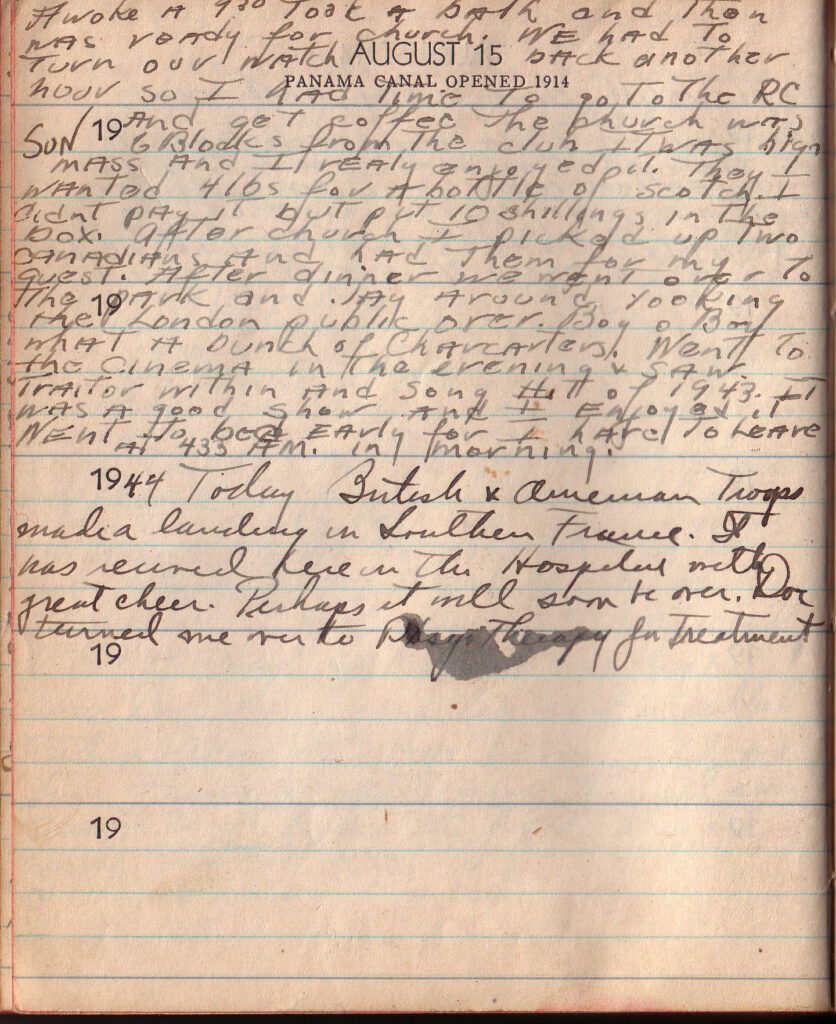 Awoke A 930 Took A bath and Then
was ready for church. WE had To
AUGUST 15
Turn our watch back another
PANAMA CANAL OPENED 1914
hour so I had Time To go To The RC
19 And get coffee The church was
SUN 6 Blocks from The club it was high
mass And I realy enjoyed it. They
wanted 4 lbs for A bottle of scotch. I
didnt pay it but put 10 shillings in The
box. After church I picked up Two
CANADIANS And had Them for my
guest. After dinner we went over To
The park and lay Around looking
19
the London public over. Boy o Boy
what A bunch of Charcarters. Went To
the Cinema in The evening & saw
Traitor within And Song Hit of 1943. IT
was A good show And I Enjoyed it
Went To bed EARLY for I hAve To LeAve
AT 433 AM. in morning.
1944 Today British & American Troops
made a landing in Southern France. It
was received here in the Hospital with
great cheer. Perhaps it will soon be over. Doc
turned me over to Physiotherapy for treatment
19
19